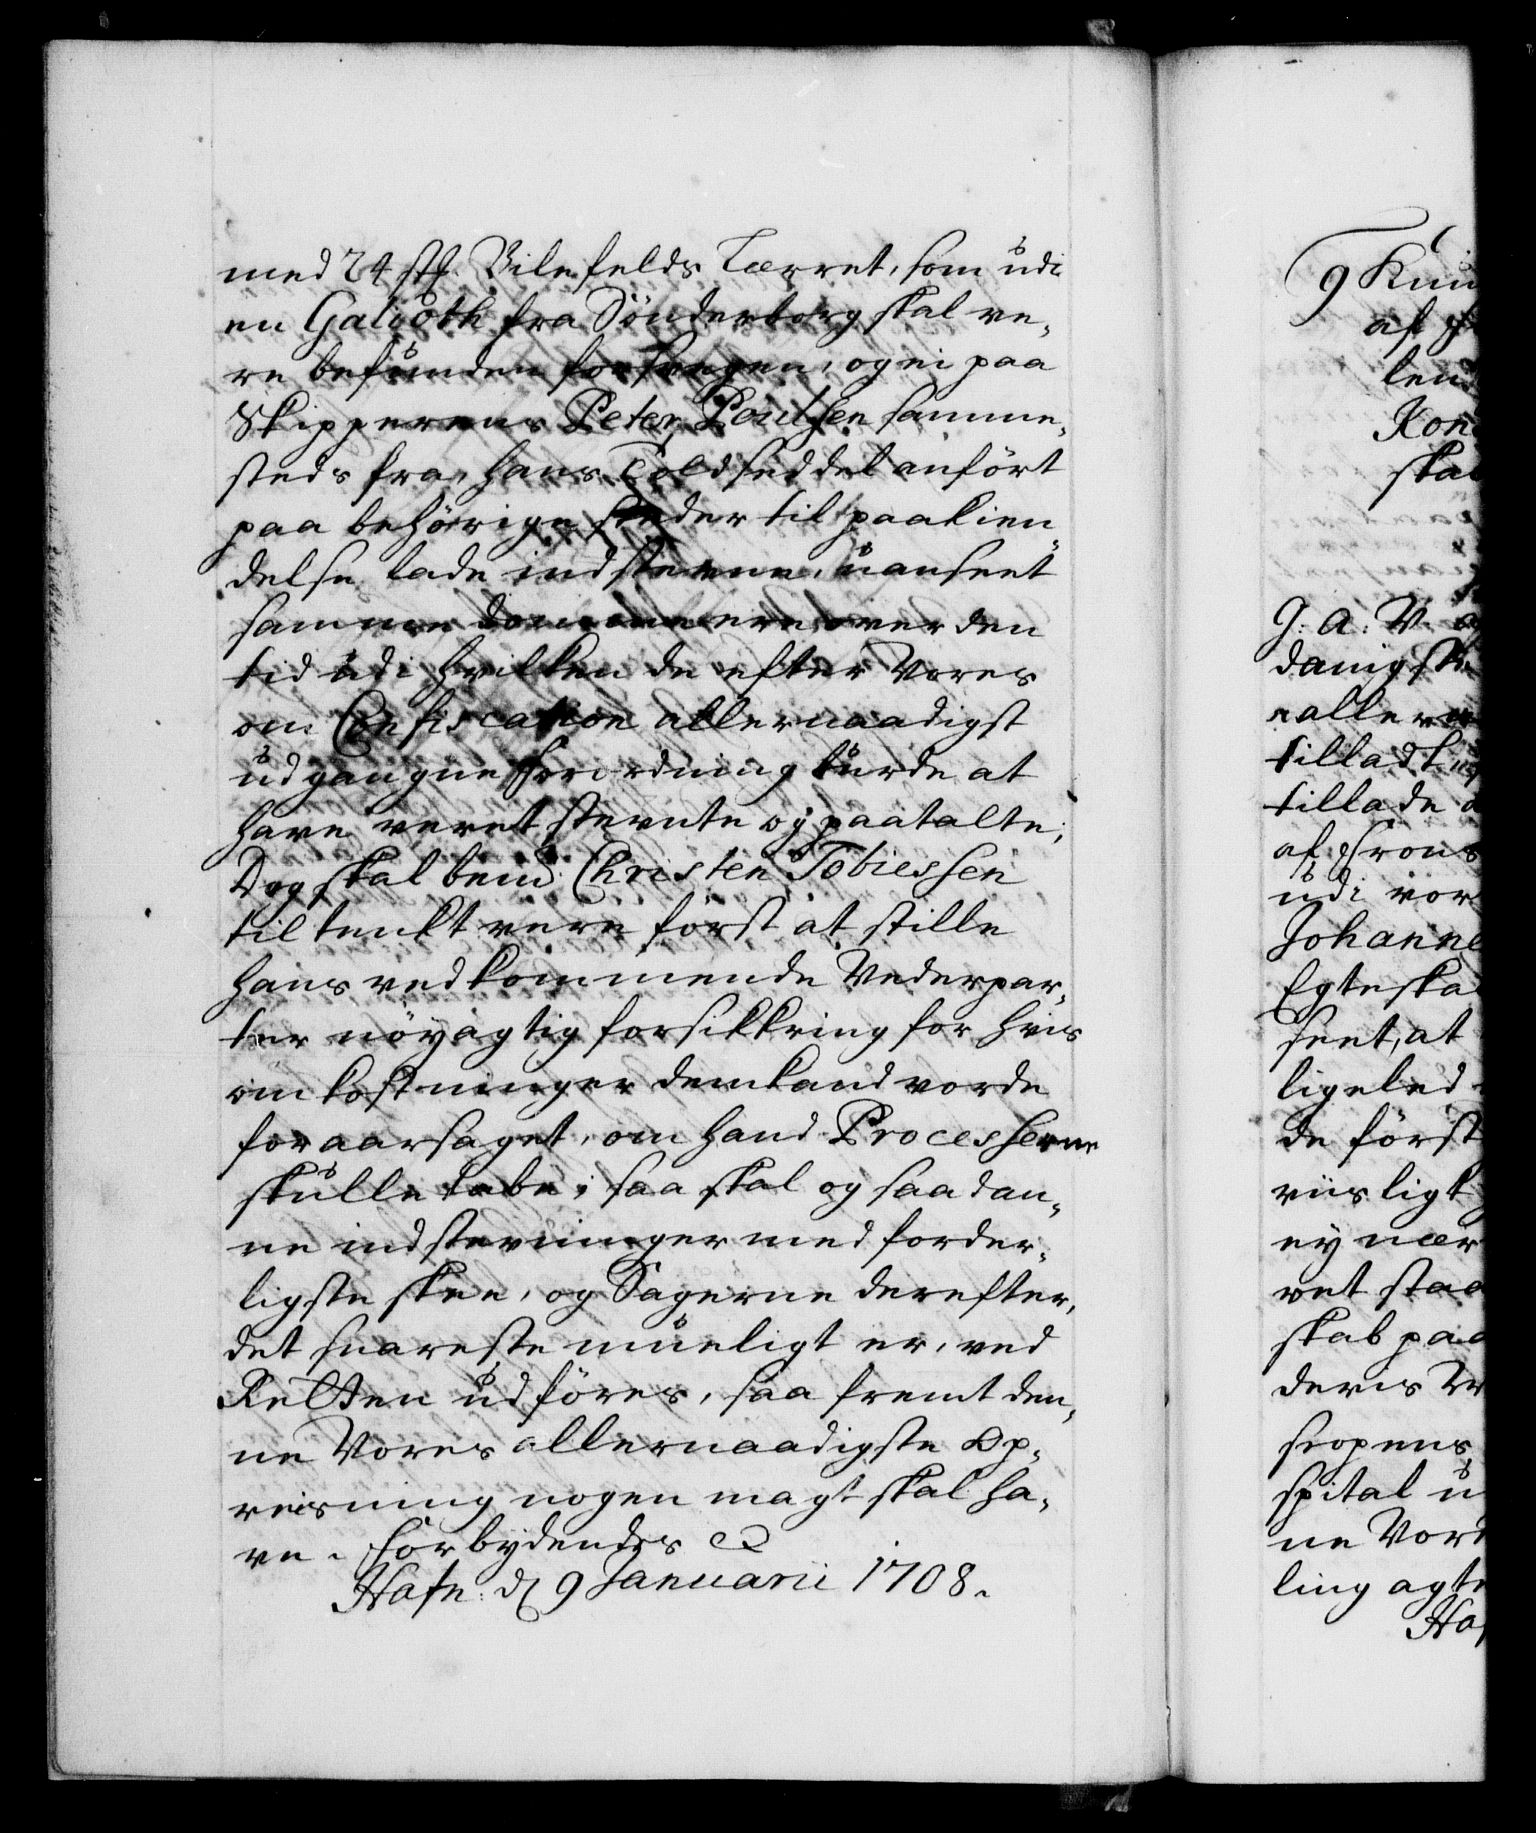 med 24 stk. Bilefelds Lærret, som udi
en Galioth fra Sönderborg skal ve-
re befunden forsvegen, og ei paa
Skipperens Peter Poulsen samme-
steds fra, hans Toldseddel anfört
paa behörige steder til paakien-
delse lade indstevne, uanseet
samme domme ere over den
tid udi hvilken de efter Vores
om Confiscation allernaadigst
udgangne Forordning burde at
have veret stevnte og paatalte;
Dog skal bem: Christen Tobiessen
tiltenkt vere först at stille
hans vedkommende Vederpar-
ter nöyagtig forsikkring for hvis
omkostninger dem kand vorde
foraarsaget, om hand Processerne
skulle tabe; saa skal og saadan-
ne indstevninger med forder-
ligste skee, og Sagerne derefter,
det snareste mueligt er, ved
Retten udföres, saa fremt den-
ne Vores allernaadigste Op-
reisning nogen magt skal ha-
ve. Forbydendes
Hafn: d 9 Januarii 1708.
9 Knu
af
len
Kon
ska
G: A: V.
danig
allern
tilladt
tillade
af Trons
udi vor
Johanne
Egteska
seet, at
ligeled
de först
viisligt
ey nær
vet staa
skab paa
deris
spital u
ne Vor
ling agt
Haf